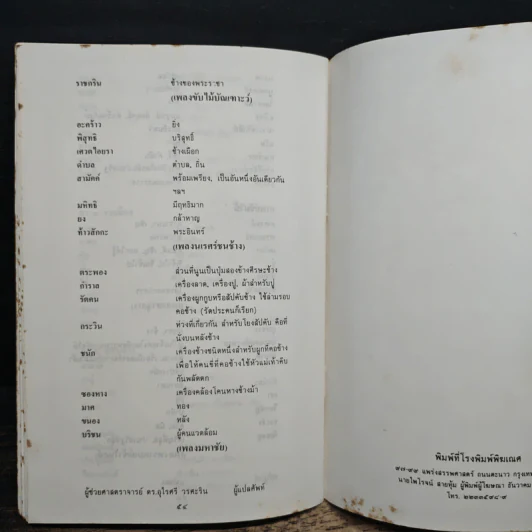 ราชกริน ช้างของพระราชา
(เพลงขับไม้บัณเฑาะว์)
อะคร้าว ยิ่ง
พิสุทธิ บริสุทธิ์
เศวตไอยรา ช้างเผือก
ตำบล ตำบล, ถิ่น
สามัคค์ พร้อมเพรียง, เป็นอันหนึ่งอันเดียวกัน
ฯลฯ
มหิทธิ มีฤทธิมาก
ยง กล้าหาญ
ท้าวสักกะ พระอินทร์
(เพลงนเรศร์ชนช้าง)
ตระพอง ส่วนที่นูนเป็นปุ่มสองข้างศีรษะช้าง
กำราล เครื่องลาด, เครื่องปู, ผ้าสำหรับปู
รัตคน เครื่องผูกกูบหรือสัปคับช้าง ใช้ล่ามรอบ
คอช้าง (รัดประคนก็เรียก)
กระวิน ห่วงที่เกี่ยวกัน สำหรับโยงสัปคับ คือที่
นั่งบนหลังช้าง
ชนัก เครื่องช้างชนิดหนึ่งสำหรับผูกที่คอช้าง
เพื่อให้คนขี่ที่คอช้างใช้หัวแม่เท้าคีบ
กันพลัดตก
ซองหาง เครื่องคล้องโคนหางช้างม้า
มาศ ทอง
ขนอง หลัง
บริชน ผู้คนแวดล้อม
(เพลงมหาชัย)
ผู้ช่วยศาสตราจารย์ ดร.อุไรศรี วรศะริน ผู้แปลศัพท์
๕๔
พิมพ์ที่โรงพิมพ์พิฆเณศ
แพร่งสรรพศาสตร์ ถนนตะนาว กรุงเทพ
นายไพโรจน์ สายหุ้ม ผู้พิมพ์ผู้โฆษณา ธันวาคม
โทร. ๒๒๓๕๙๘-๙